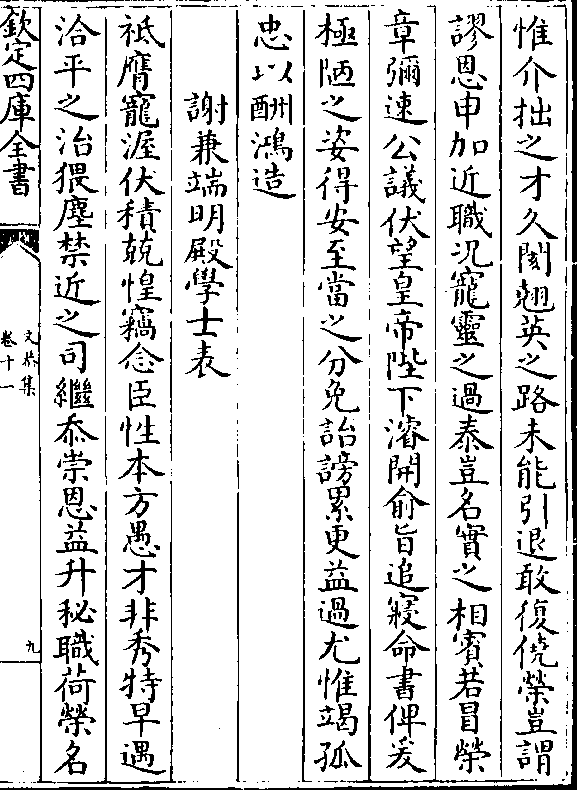 惟介拙之才久閡翹英之路未能引退敢復僥榮豈謂
謬恩申加近職况寵靈之過泰豈名實之相賓若冒榮
章彌速公議伏望皇帝陛下濬開俞旨追寢命書俾爰
極陋之姿得安至當之分免詒謗累更益過尤惟竭孤
忠以酬鴻造
謝兼端明殿學士表
祗膺寵渥伏積兢惶竊念臣性本方愚才非秀特早遇
洽平之治猥塵禁近之司繼忝崇恩益升秘職荷榮名
欽定四庫全書
文恭集
卷十一
九